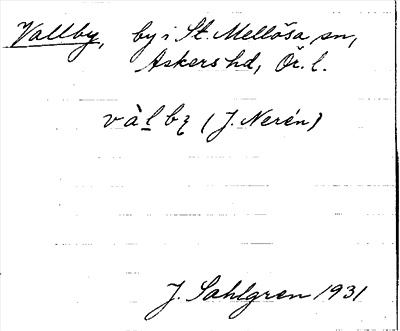 Vallby, by i St. Mellösa sn,
Askers hd, Ör. l.
vàlbę (J. Nerén)
J. Sahlgren 1931